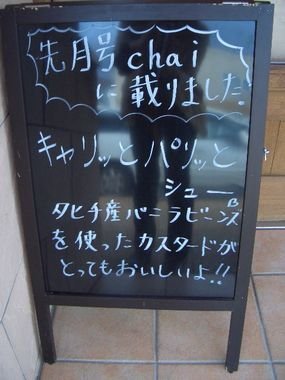 先月号chai
に載りました!
キャリッとパリッと
シュー
タヒチ産バニラビーンズ
を使ったカスタードが
とってもおいしいよ!!